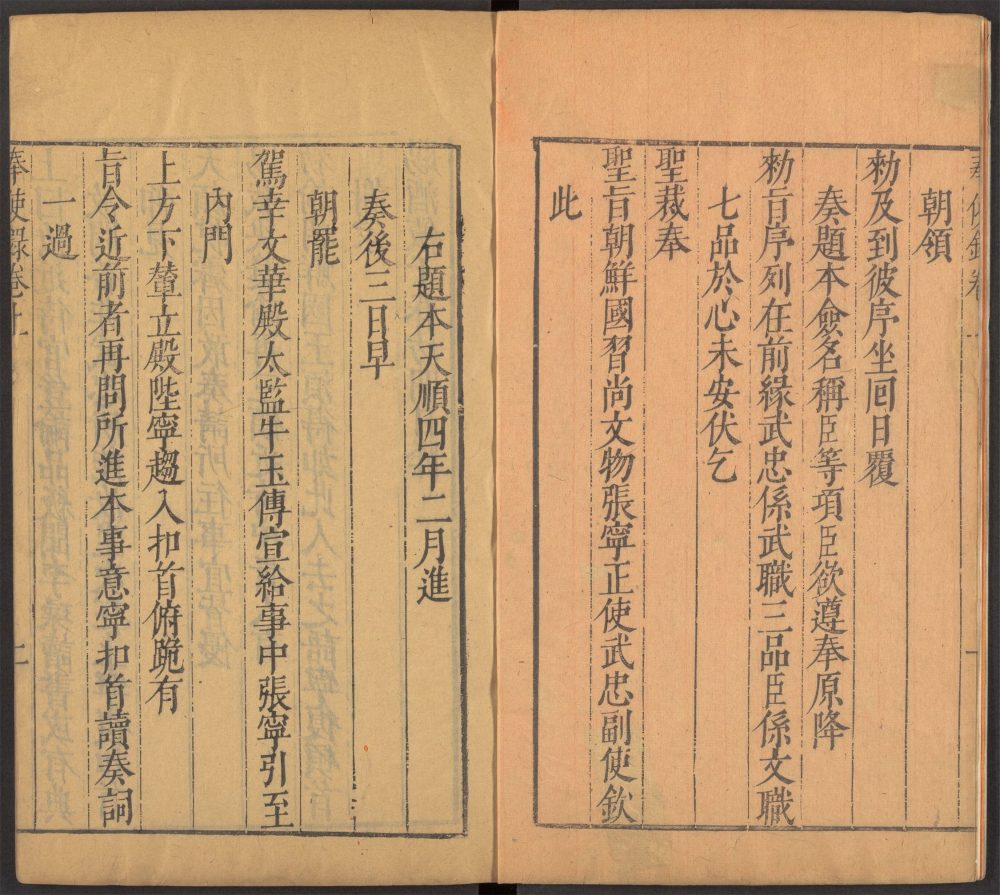 朝領
勑及到彼序坐囘日覆
奏題本僉名稱臣等項臣欲遵奉原降
勑旨序列在前緣武忠係武職三品臣係文職
七品於心未安伏乞
聖裁奉
聖旨朝鮮國習尚文物張寧正使武忠副使欽
此
右題本天順四年二月進
奏後三日早
朝罷
駕幸文華殿太監牛玉傳宣給事中張寧引至
內門
上方下輦立殿陛寧趨入扣首俯跪有
旨令近前者再問所進本事意寧扣首讀奏詞
一過
奉使錄卷上 二